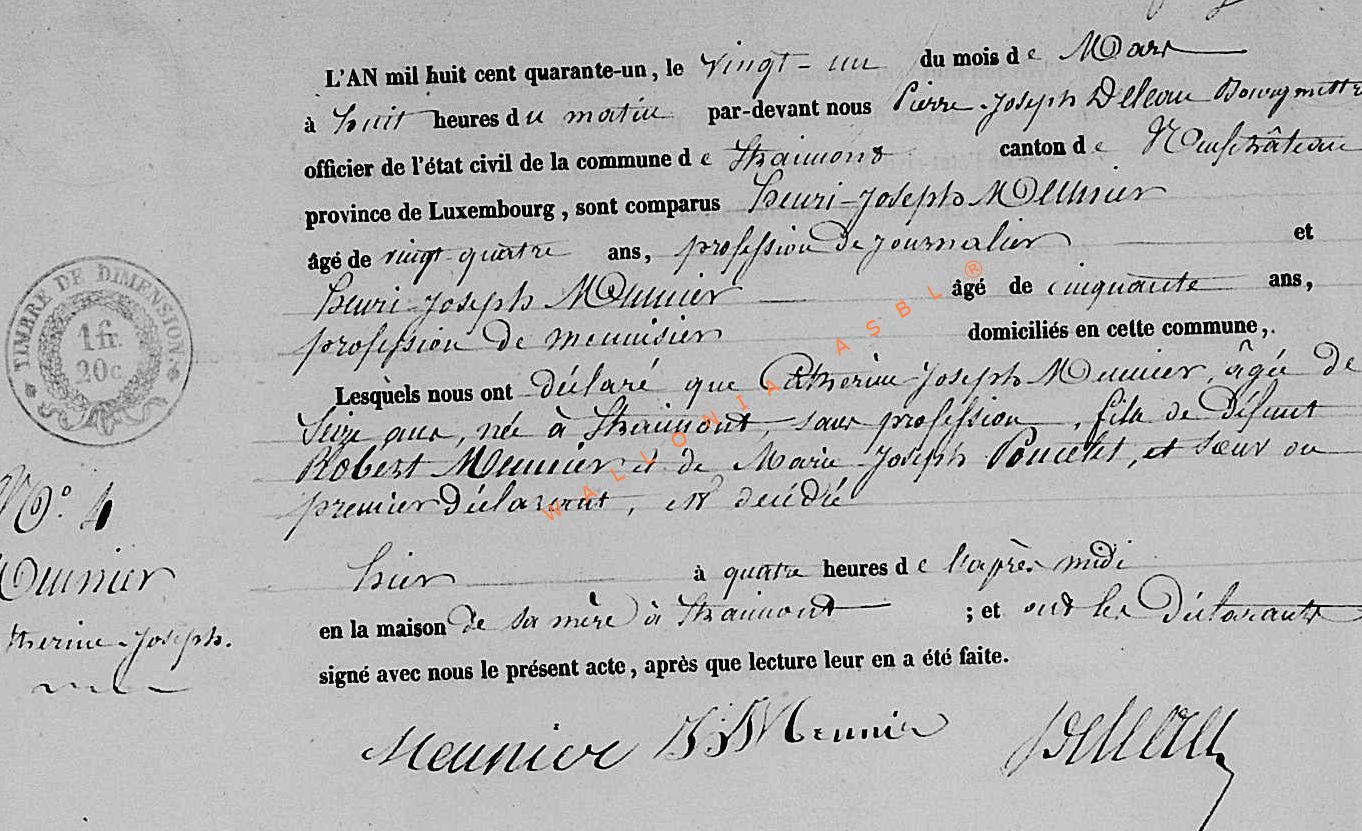 L'AN mil huit cent quarante-un, le vingt-un du mois de Mars
à huit heures du matin par-devant nous Pierre-Joseph Deleau Bourgmettre
officier de l'état civil de la commune de Straimont canton de Neufchâteau
province de Luxembourg, sont comparus henri-Joseph Meunier
âgé de vingt-quatre ans, profession de journalier et
henri-Joseph Meunier âgé de cinquante ans,
profession de menuisier domiciliés en cette commune,
Lesquels nous ont déclaré que Catherine-Joseph Meunier, âgée de
Seize ans, née à Straimont, sans profession, fille de défunt
Robert Meunier et de Marie-Joseph Poncelet, et sœur du
premier déclarant, est décédée
hier à quatre heures de l'après midi
en la maison de sa mère à Straimont ; et ont les déclarants
signé avec nous le présent acte, après que lecture leur en a été faite.
Meunier HJ Meunier Deleau
TIMBRE DE DIMENSION.
1 fr.
20 c.
No. 4
Meunier
therine-Joseph.
WALLONIA ASBL ®